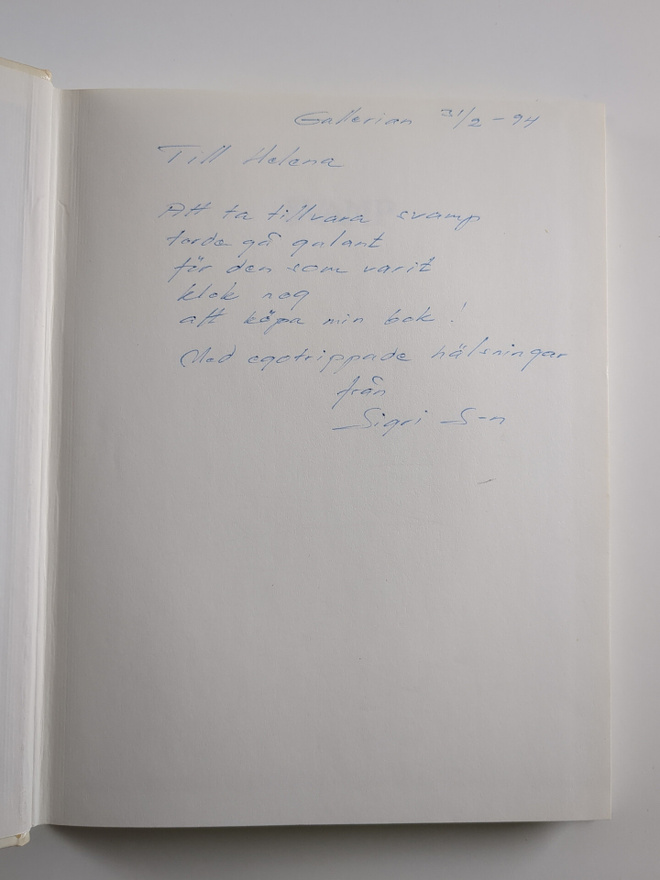 Gallerian 31/2 - 94
Till Helena
Att ta tillvara svamp
torde gå galant
för den som varit
klok nog
att köpa min bok!
Med egotrippade hälsningar
från
Sigri S-n